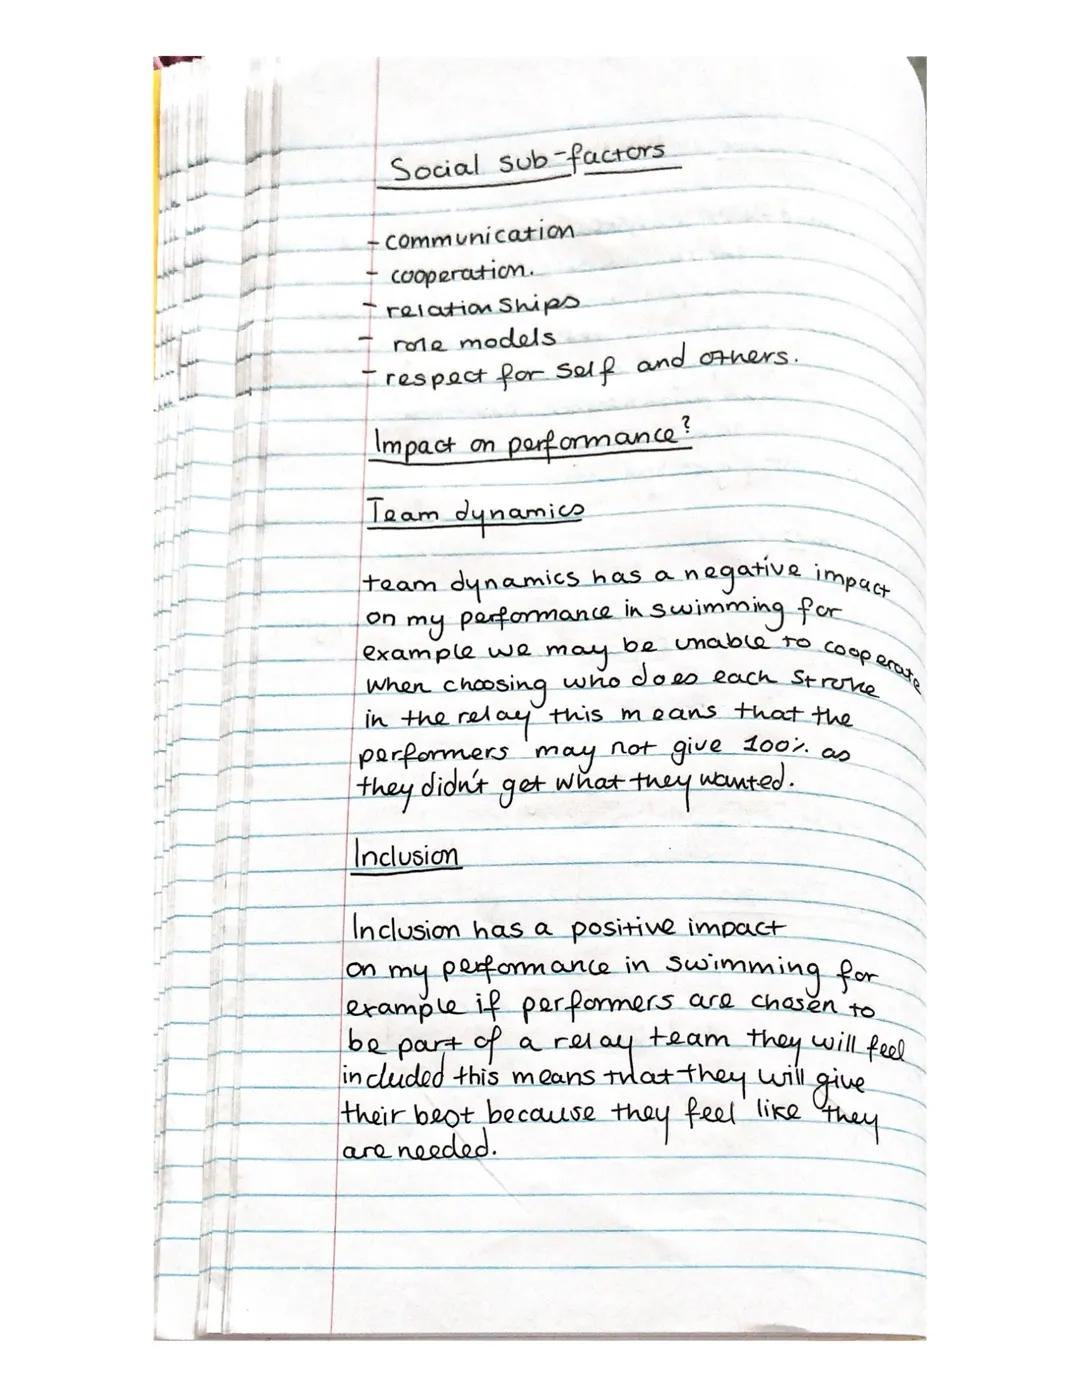 Social sub-factors
- communication
- cooperation.
- relationships
- role models
- respect for self and others.
Impact on performance?
Team dynamics
team dynamics has a negative impact
on my performance in swimming for
example we may be unable to cooperate
when choosing who does each stroke
in the relay this means that the
performers may not give 100% as
they didn't get what they wanted.
Inclusion
Inclusion has a positive impact
on my performance in swimming for
example if performers are chosen to
be part of a relay team they will feel
included this means that they will give
their best because they feel like they
are needed.